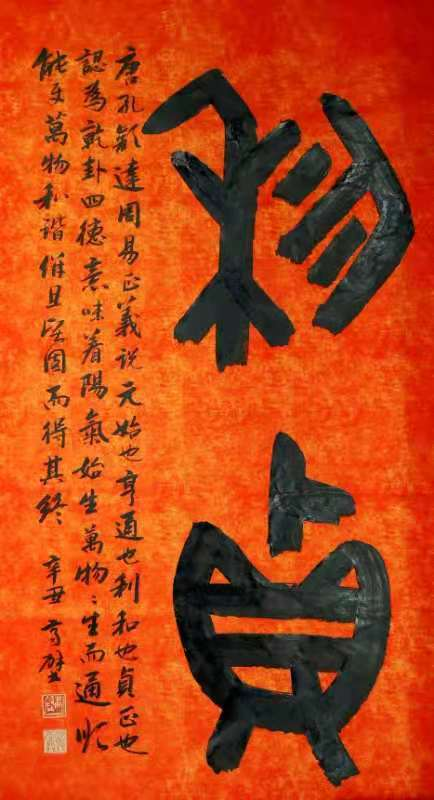 利貞
唐孔颖達周易正義説元始也亨通也利和也貞正也
認為乾卦四德意味着陽氣始生萬物物生而通順
能使萬物和谐並且堅固而得其終
辛丑